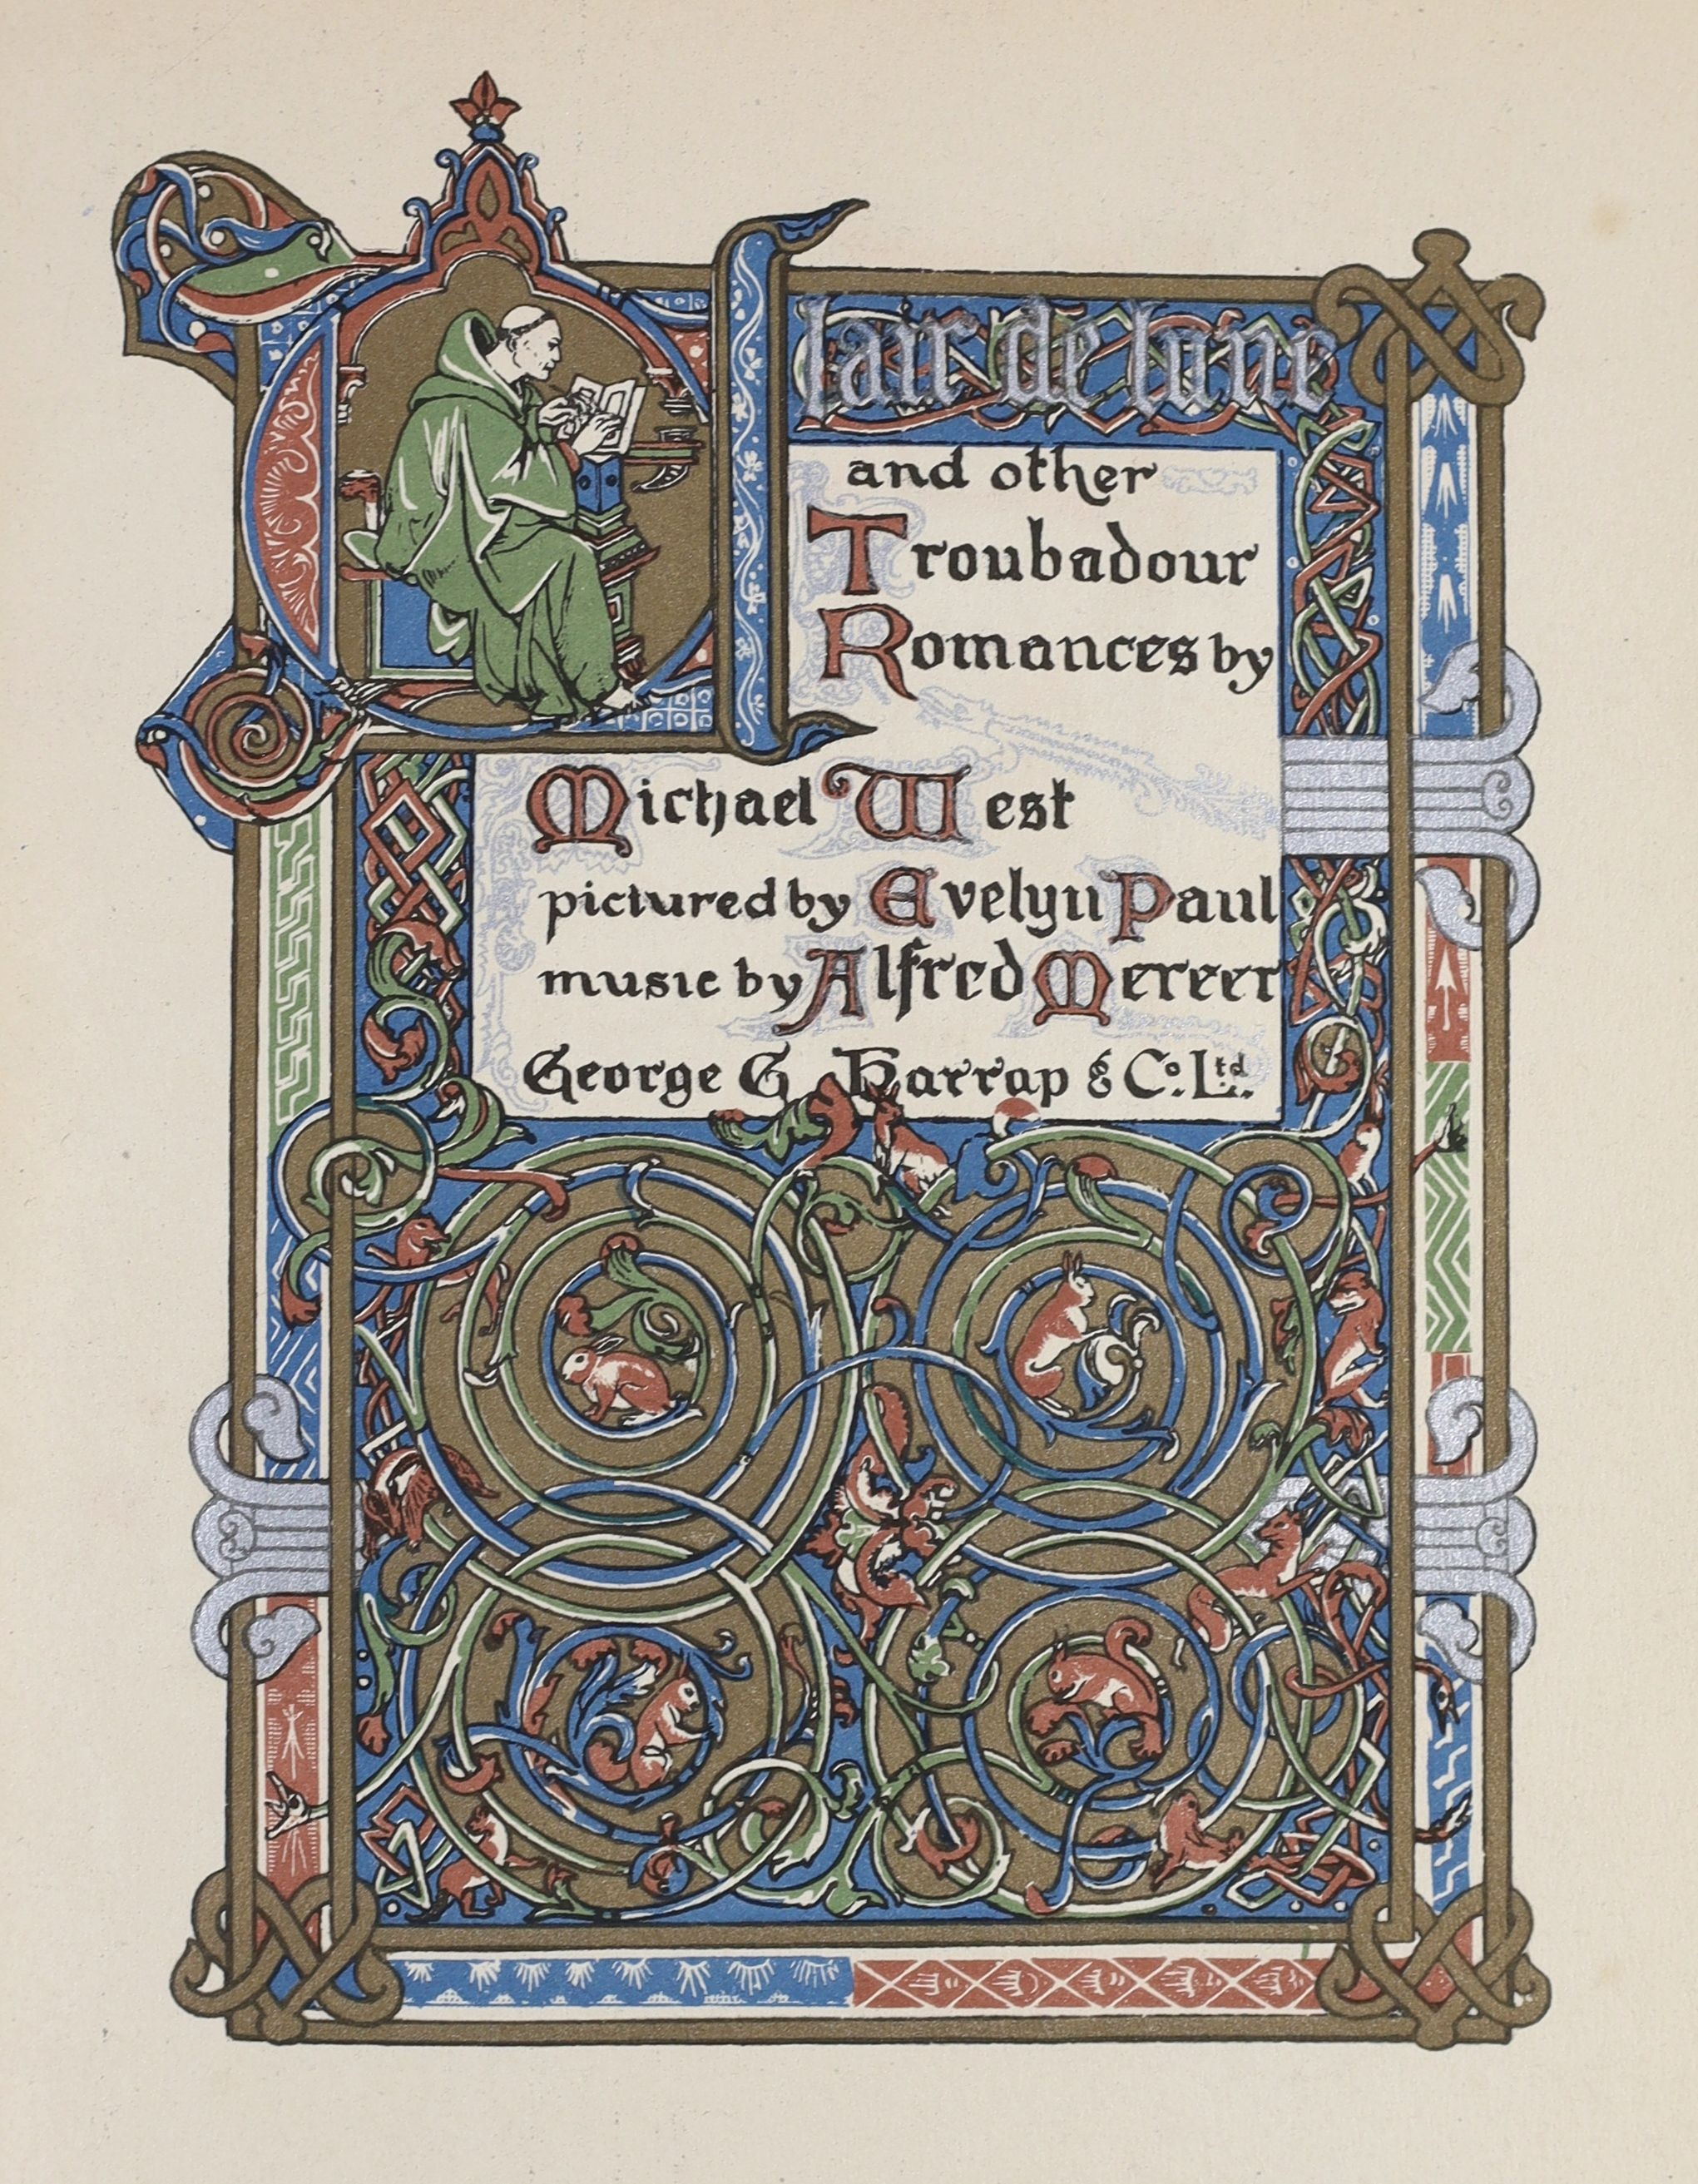 Clair de lune
and other
Troubadour
Romances by
Michael West
pictured by Evelyn Paul
music by Alfred Mercer
George G. Harrap & Co. Ltd.